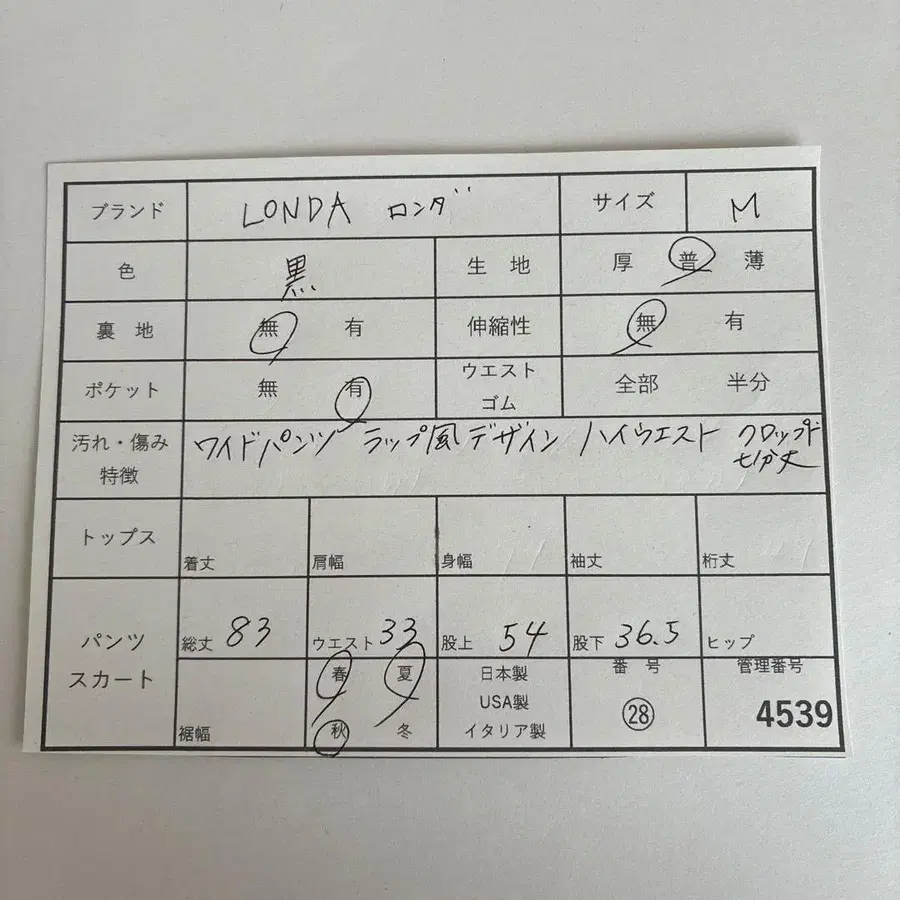 ブランド LONDA ロンダ サイズ M
色 黒 生地 厚 普 薄
裏地 無 有 伸縮性 無 有
ポケット 無 有 ウエスト 全部 半分
ゴム
汚れ・傷み ワイドパンツ ラップ風デザイン ハイウエスト クロップド
特徴 七分丈
トップス
着丈 肩幅 身幅 袖丈 裄丈
パンツ 総丈 83 ウエスト 33 股上 54 股下 36.5 ヒップ
スカート 春 夏 日本製 番号 管理番号
USA製 ㉘ 4539
裾幅 秋 冬 イタリア製